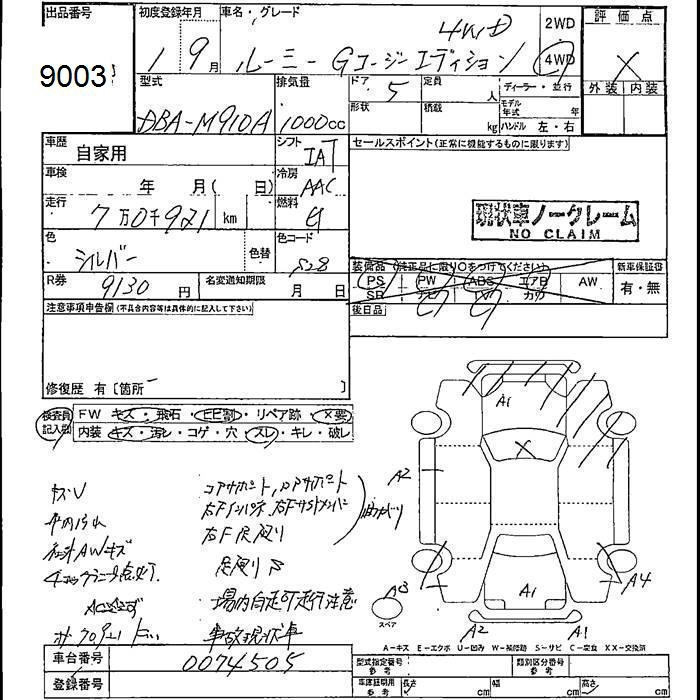 出品番号 初度登録年月 車名・グレード 評価点
9003 1 9月 ルーミー Gコージーエディション 4WD 2WD 4WD X
外装 内装
型式 排気量 ドア 5 定員 人 ディーラー・並行
DBA-M910A 1000cc 形状 積載 kg モデル年式 年
ハンドル 左・右
車歴 自家用 シフト IAT セールスポイント(正常に機能するものに限ります)
車検 年 月( 日) 冷房 AAC
走行 7万0千921 km 燃料 G
現状車ノークレーム
NO CLAIM
色 シルバー 色替 色コード S28
装備品(純正品に限り○をつけてください) 新車保証書
R券 9130円 名変通知期限 月 日 PS PW ABS エアB AW 有・無
SR ナビ TV カワ
注意事項申告欄(不具合内容等は具体的に記入して下さい) 後日品
修復歴 有[箇所 ]
検査員記入欄 FW キズ・飛石・ヒビ割・リペア跡・X要
内装 キズ・汚レ・コゲ・穴 スレ・キレ・破レ
A1
X
A2
A1
A3 A4
スペア
A2 A1
コアサポート,
右Fインパネ,
足廻り
場内自走可走行注意
事故現状車
A-キズ E-エクボ U-凹み W-補修跡 S-サビ C-腐食 XX-交換済
車台番号 0074505 型式指定番号 参考 類別区分番号 参考
登録番号 車庫証明用 参考 長さ cm 幅 cm 高さ cm